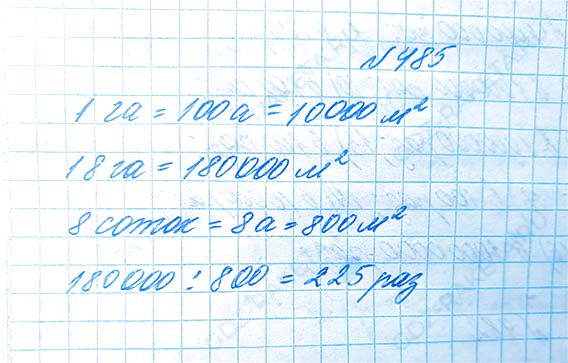 №485
1 га = 100 а = 10000 м²
18 га = 180000 м²
8 соток = 8 а = 800 м²
180000 : 800 = 225 раз